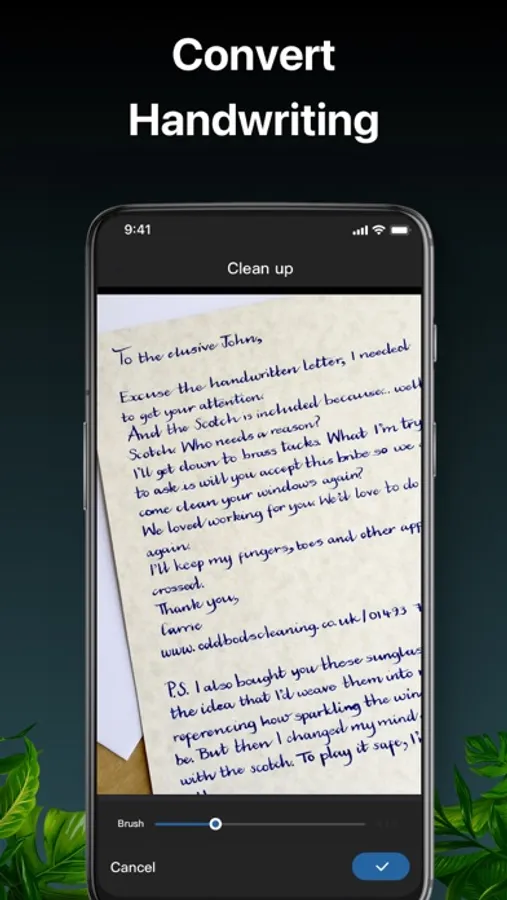 Convert
Handwriting
9:41
Clean up
To the elusive John,
Excuse the handwritten letter, I needed
to get your attention.
And the Scotch is included because.. well
Scotch. Who needs a reason?
I'll get down to brass tacks. What I'm try
to ask is will you accept this bribe so we
come clean your windows again?
We loved working for you. We'd love to do
again.
I'll keep my fingers, toes and other app
crossed.
Thank you,
Carrie
www.oddbodscleaning.co.uk/01493
P.S. I also bought you these sunglas
the idea that I'd weave them into
referencing how sparkling the win
be. But then I changed my mind
with the scotch. To play it safe, I'
Brush
Cancel